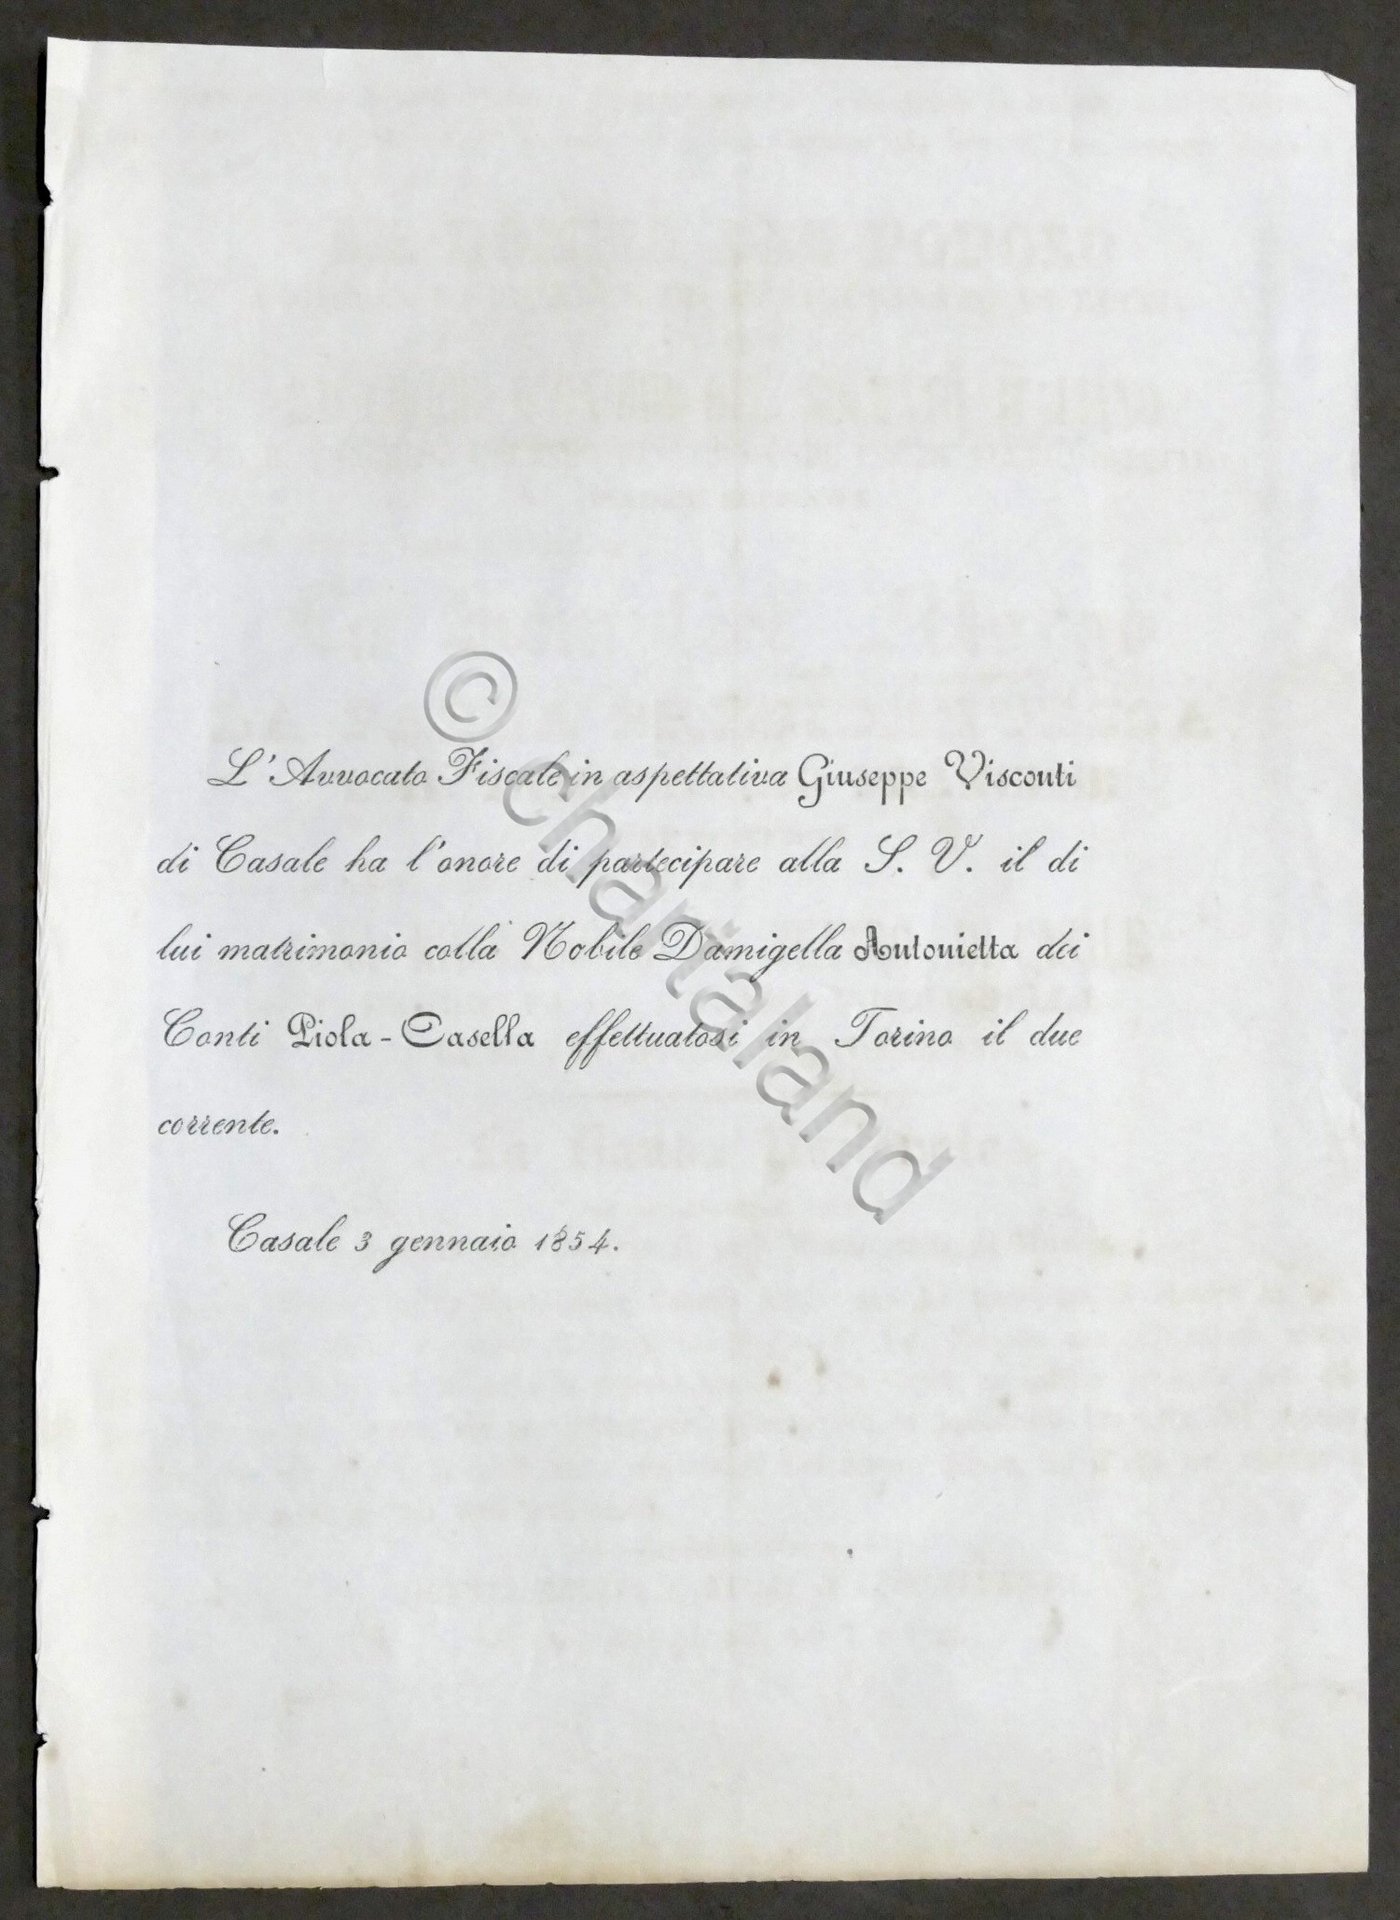 L'Avvocato Fiscale in aspettativa Giuseppe Visconti
di Casale ha l'onore di partecipare alla S. V. il di
lui matrimonio colla Nobile Damigella Antonietta dei
Conti Piola-Casella effettuatosi in Torino il due
corrente.
Casale 3 gennaio 1854.
© chartaland